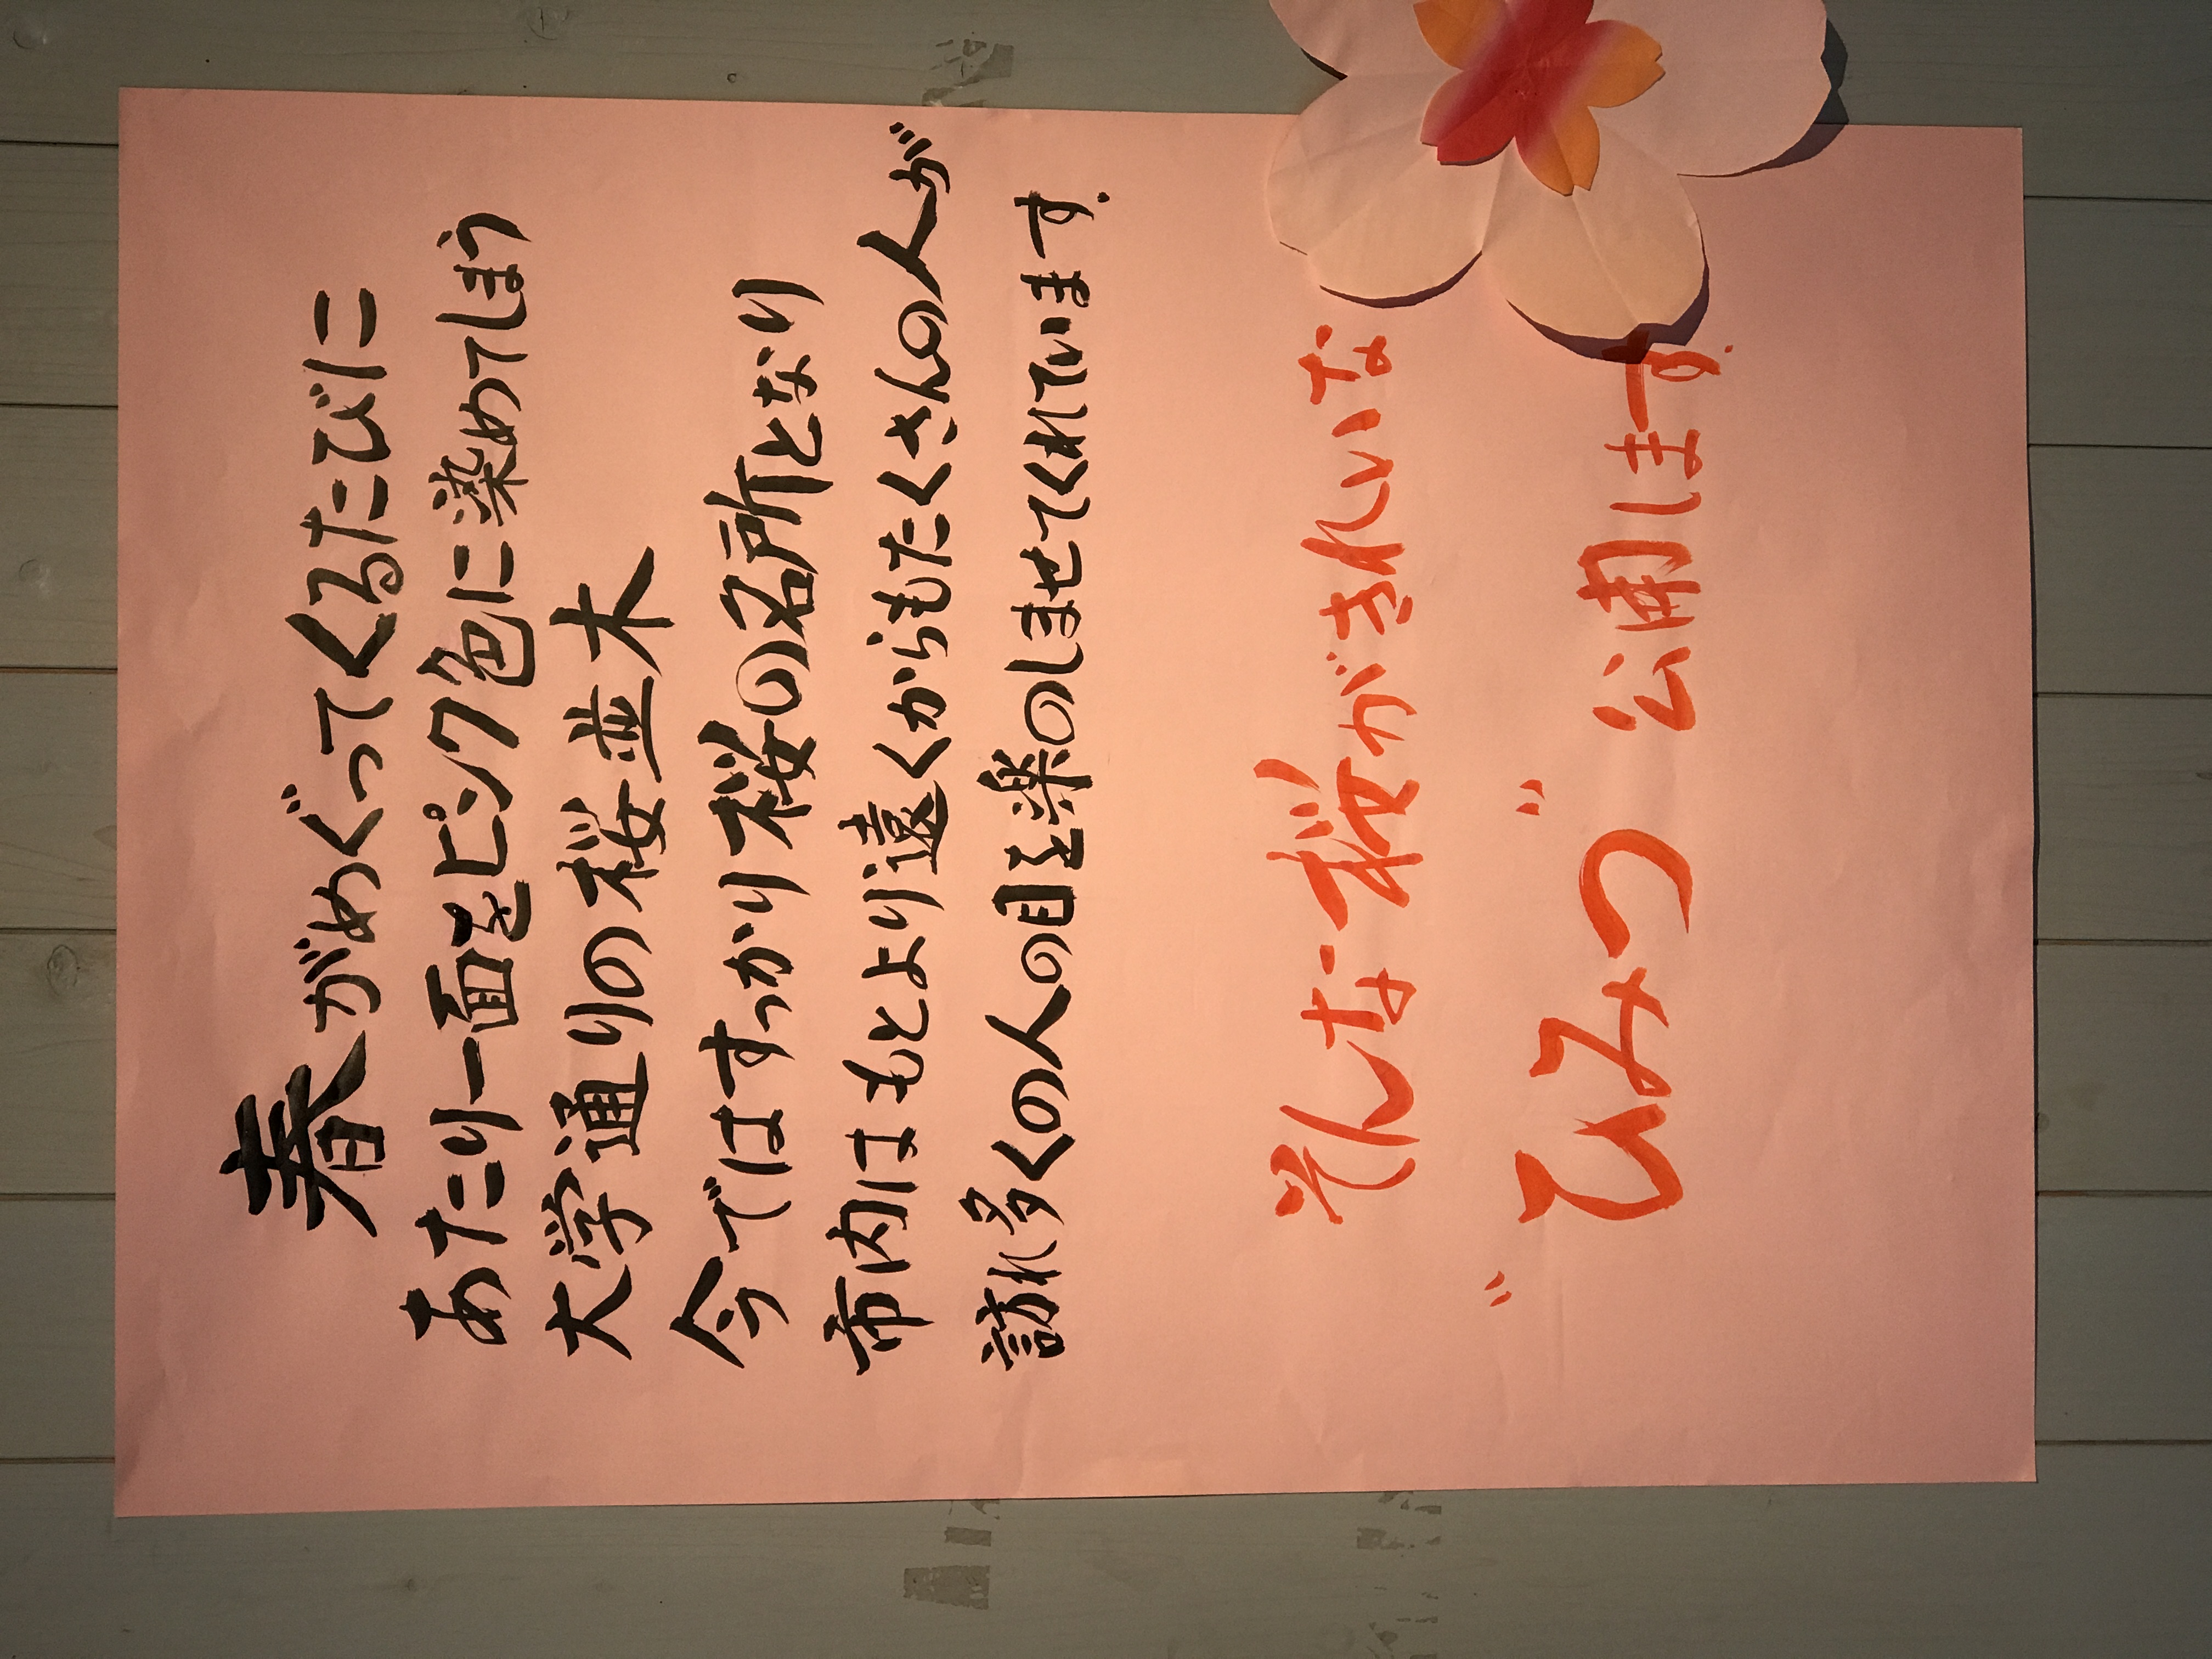 春がめぐってくるたびに
あたり一面をピンク色に染めてしまう
大学通りの桜並木
今ではすっかり桜の名所となり
市内はもとより遠くからもたくさんの人が
訪れ多くの人の目を楽のしませてくれています.
そんな桜がきれいな
"ひみつ"公開します.